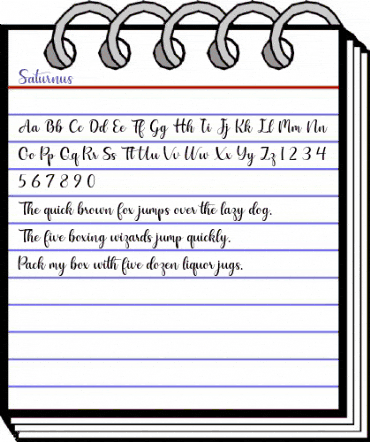 Saturnus
Aa Bb Cc Dd Ee Ff Gg Hh Ii Jj Kk Ll Mm Nn
Oo Pp Qq Rr Ss Tt Uu Vv Ww Xx Yy Zz 1 2 3 4
5 6 7 8 9 0
The quick brown fox jumps over the lazy dog.
The five boxing wizards jump quickly.
Pack my box with five dozen liquor jugs.